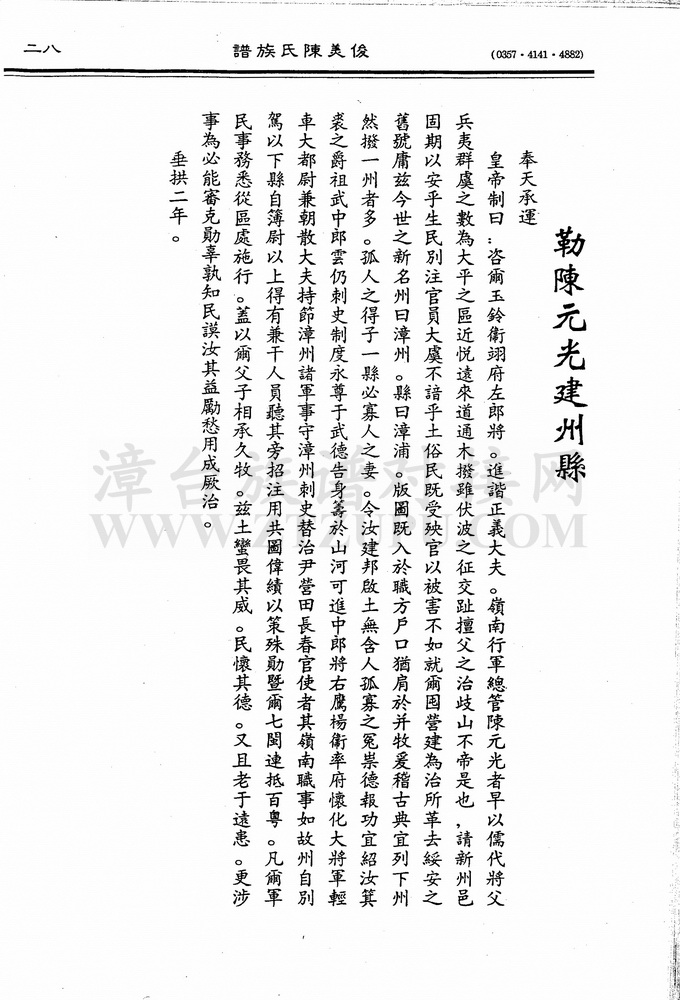 二八
俊美陳氏族譜
(0357・4141・4882)
勒陳元光建州縣
奉天承運
皇帝制曰：咨爾玉鈴衛翊府左郎將。進諧正義大夫。嶺南行軍總管陳元光者早以儒代將父
兵夷群虞之數為大平之區近悅遠來道通木撥雖伏波之征交趾擅父之治歧山不帝是也，請新州邑
固期以安乎生民別注官員大虞不諳乎土俗民既受殃官以被害不如就爾囤營建為治所革去綏安之
舊號庸茲今世之新名州曰漳州。縣曰漳浦。版圖既入於職方戶口猶肩於并牧爰稽古典宜列下州
然撥一州者多。孤人之得子一縣必寡人之妻。令汝建邦啟土無含人孤寡之冤崇德報功宜紹汝箕
裘之爵祖武中郎雲仍刺史制度永尊于武德告身籌於山河可進中郎將右鷹楊衛率府懷化大將軍輕
車大都尉兼朝散大夫持節漳州諸軍事守漳州刺史替治尹營田長春官使者其嶺南職事如故州自別
駕以下縣自簿尉以上得有兼干人員聽其旁招注用共圖偉績以策殊勛暨爾七閩連抵百粵。凡爾軍
民事務悉從區處施行。蓋以爾父子相承久牧。茲土蠻畏其威。民懷其德。又且老于遠患。更涉
事為必能審克勛辜孰知民謨汝其益勵愁用成厥治。
垂拱二年。
漳台族谱对接网